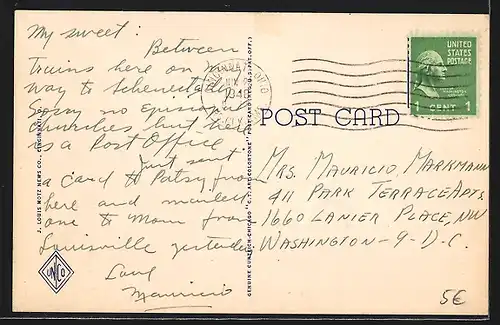 My sweet:
Between
trains here on my
way to Schenectady.
Sorry no Episcopal
churches, but here
is a Post Office
Just sent
a card to Patsy from
here and mailed
one to Mom from
Louisville yesterday
Love
Mauricio
POST CARD
UNITED
STATES
POSTAGE
1 CENT 1
Mrs. Mauricio Markmann
411 Park Terrace Apts.
1660 Lanier Place, NW
Washington-9-D.C.
5€
J. LOUIS MOTZ NEWS CO., CINCINNATI,
GENUINE CURTEICH-CHICAGO "C.T. ART-COLORTONE" POST CARD (REG. U.S. PAT. OFF.)
OHIO